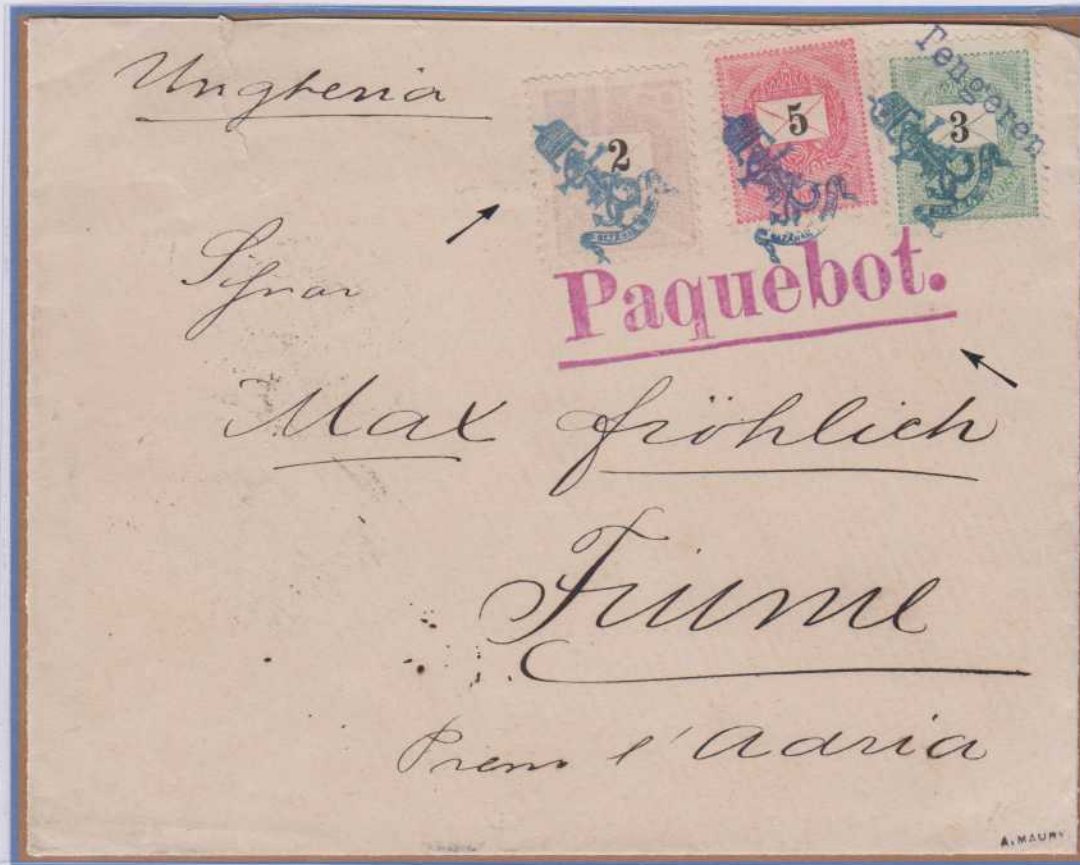 Ungheria
2
5
3
Tengeren.
Paquebot.
Signor
Max Fröhlich
Fiume
l'Adria
A. MAURY